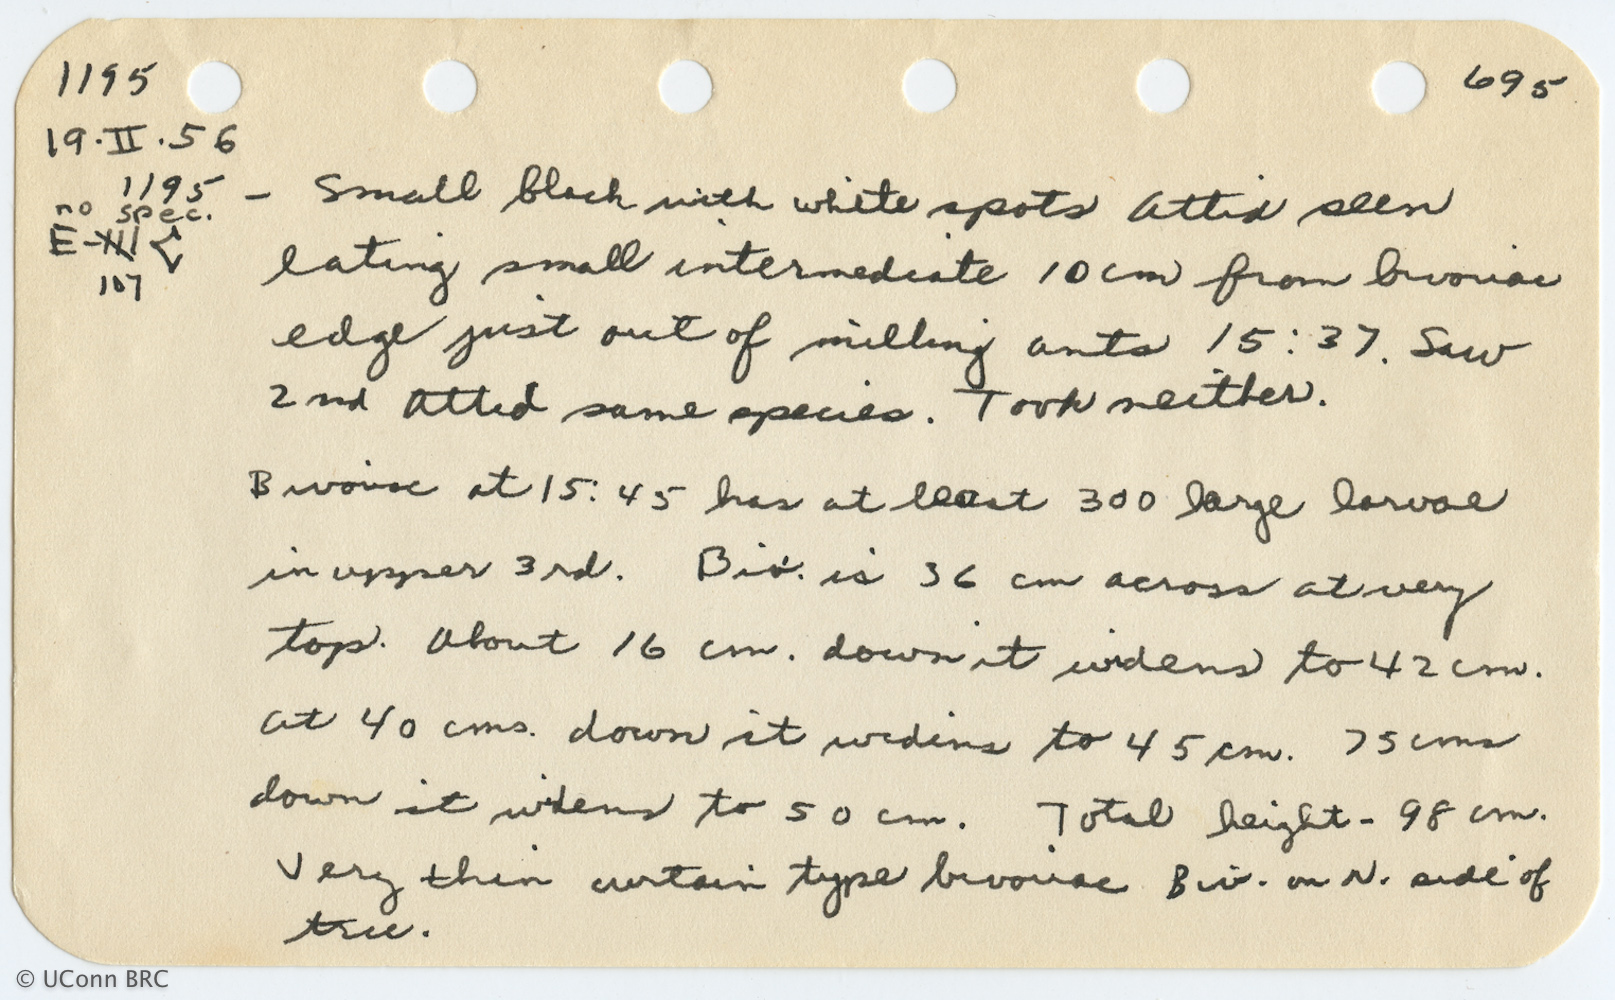 1195
695
19.II.56
1195 - Small black with white spots Attid seen
no spec.
E-
107
eating small intermediate 10 cm from bivouac
edge just out of milling ants 15:37. Saw
2nd Attid same species. Took neither.
Bivouac at 15:45 has at least 300 large larvae
in upper 3rd. Biv. is 36 cm across at very
top. About 16 cm. down it widens to 42 cm.
At 40 cms. down it widens to 45 cm. 75 cms
down it widens to 50 cm. Total height - 98 cm.
Very thin curtain type bivouac Biv. on N. side of
tree.
© UConn BRC